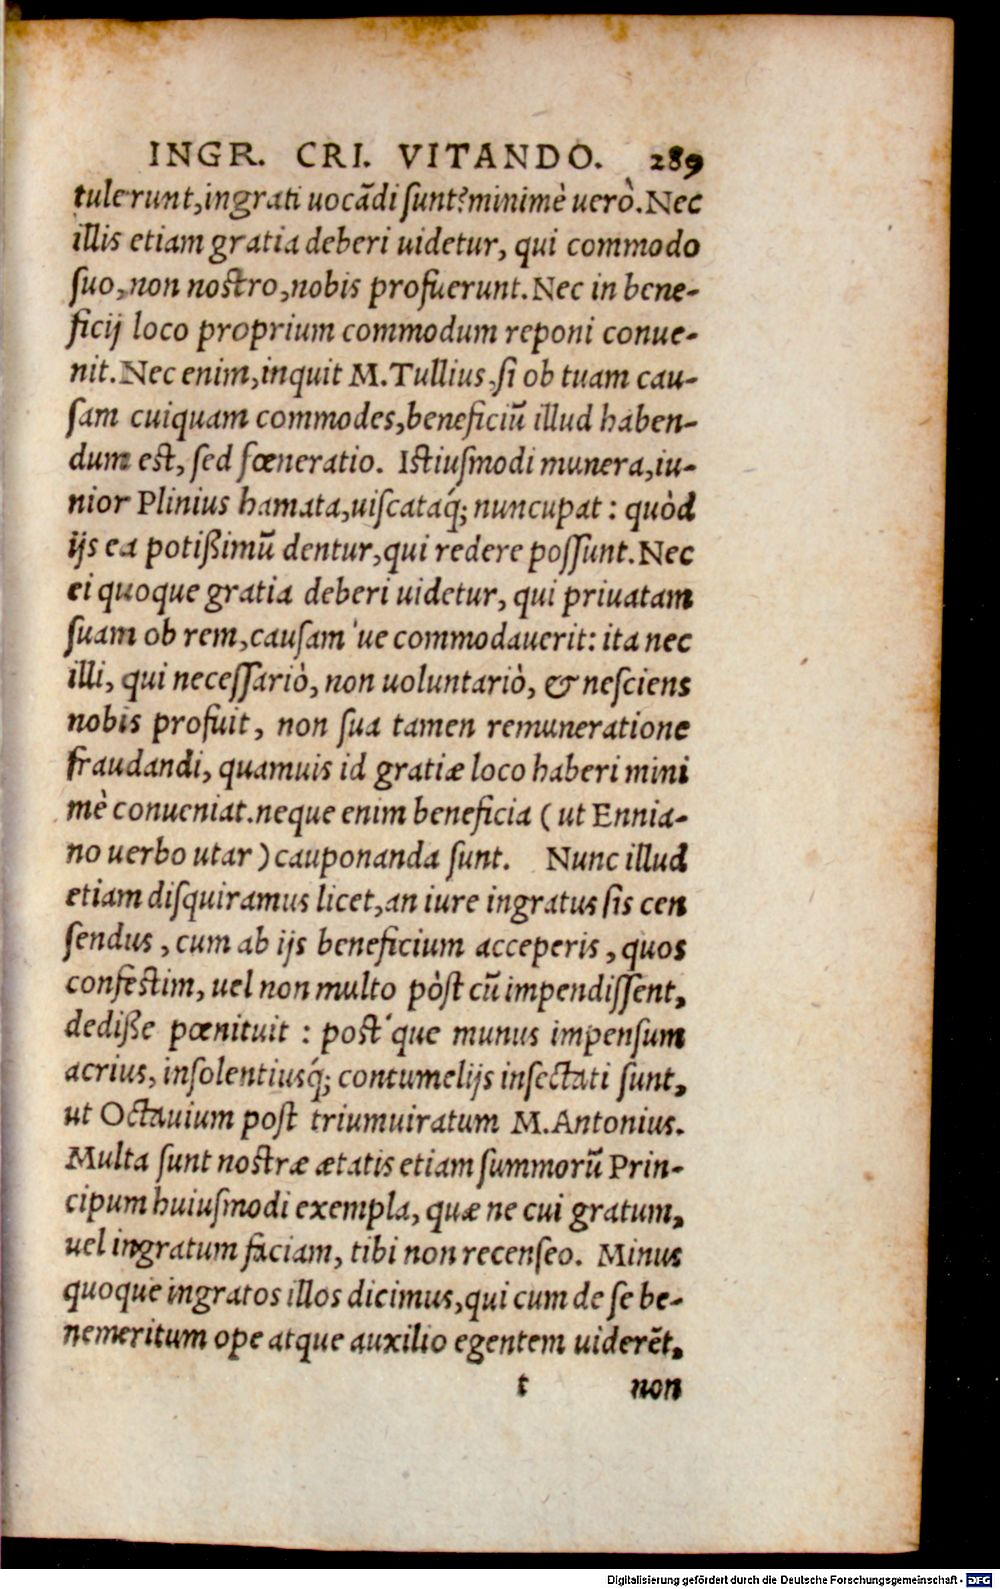 INGR. CRI. VITANDO. 289
tulerunt, ingrati uocādi sunt? minimè uerò. Nec
illis etiam gratia deberi uidetur, qui commodo
suo, non nostro, nobis profuerunt. Nec in bene-
ficij loco proprium commodum reponi conue-
nit. Nec enim, inquit M. Tullius, si ob tuam cau-
sam cuiquam commodes, beneficiū illud haben-
dum est, sed fœneratio. Istiusmodi munera, iu-
nior Plinius hamata, uiscataq́; nuncupat: quòd
ijs ea potißimū dentur, qui redere possunt. Nec
ei quoque gratia deberi uidetur, qui priuatam
suam ob rem, causam'ue commodauerit: ita nec
illi, qui necessariò, non uoluntariò, & nesciens
nobis profuit, non sua tamen remuneratione
fraudandi, quamuis id gratiæ loco haberi mini
mè conueniat. neque enim beneficia (ut Ennia-
no uerbo utar) cauponanda sunt. Nunc illud
etiam disquiramus licet, an iure ingratus sis cen
sendus, cum ab ijs beneficium acceperis, quos
confestim, uel non multo pòst cū impendissent,
dediße pœnituit: post'que munus impensum
acrius, insolentiusq́; contumelijs insectati sunt,
ut Octauium post triumuiratum M. Antonius.
Multa sunt nostræ ætatis etiam summorū Prin-
cipum huiusmodi exempla, quæ ne cui gratum,
uel ingratum faciam, tibi non recenseo. Minus
quoque ingratos illos dicimus, qui cum de se be-
nemeritum ope atque auxilio egentem uiderēt,
t non
Digitalisierung gefördert durch die Deutsche Forschungsgemeinschaft - DFG